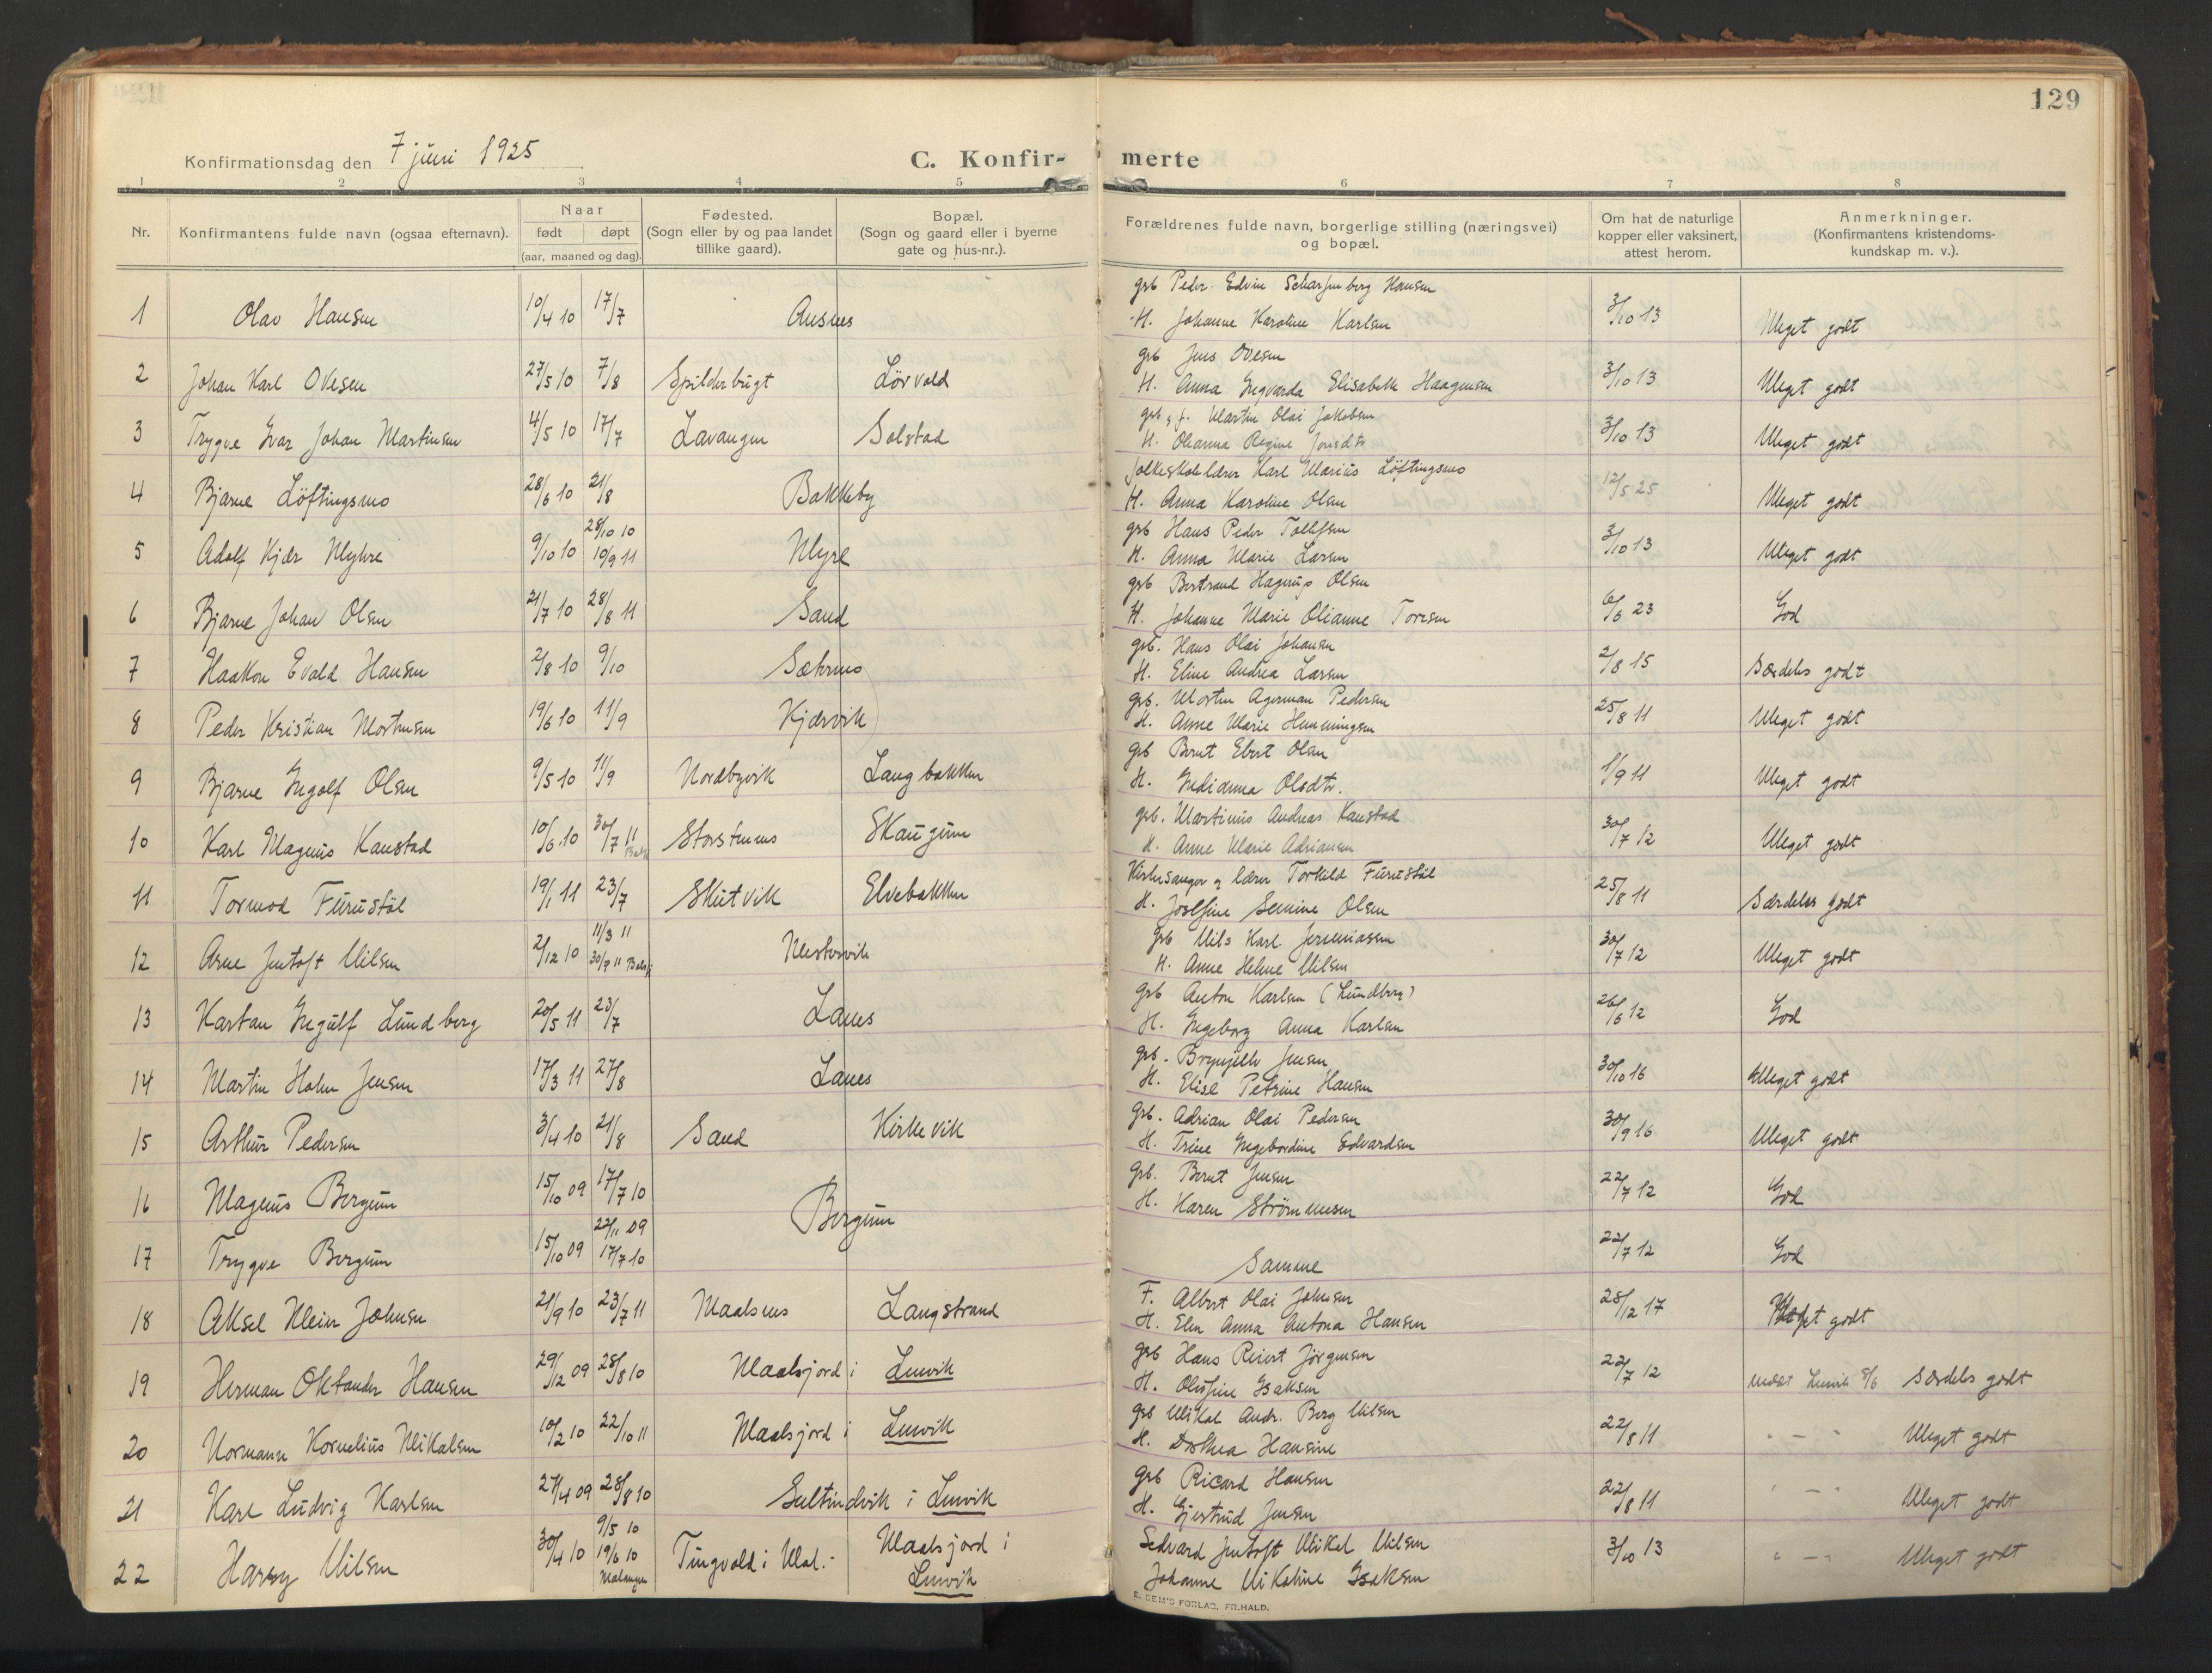 129
Konfirmationsdag den 7 juni 1925
C. Konfir- merte
1 2 3 4 5 6 7 8
Nr.
Konfirmantens fulde navn (ogsaa efternavn).
Naar
født døpt
(aar, maaned og dag).
Fødested.
(Sogn eller by og paa landet
tillike gaard).
Bopæl.
(Sogn og gaard eller i byerne
gate og hus-nr.).
Forældrenes fulde navn, borgerlige stilling (næringsvei)
og bopæl.
Om hat de naturlige
kopper eller vaksinert,
attest herom.
Anmerkninger.
(Konfirmantens kristendoms-
kundskap m. v.).
grb Peder Edvin Scharfenberg Hansen
1 Olav Hansen 10/4 10 17/7 Ansnes H. Johanne Karoline Karlsen 3/10 13 Meget godt
grb Jens Ovesen
2 Johan Karl Ovesen 27/5 10 7/8 Spilderbugt Lörvold H. Anna Ingvarda Elisabeth Haagensen 3/10 13 Meget godt
grb, f. Martin Olai Jakobsen
3 Trygve Ivar Johan Martinsen 4/5 10 17/7 Lavangen Solstad H. Olianna Regine Jonsdtr 3/10 13 Meget godt
folkeskolelærer Karl Marius Löftingsmo
4 Bjarne Löftingsmo 28/6 10 21/8 Bakkeby H. Anna Karoline Olsen 12/5 25 Meget godt
28/10 10 grb Hans Peder Tollefsen
5 Adolf Kjær Myhre 9/10 10 10/9 11 Myre H. Anna Marie Larsen 3/10 13 Meget godt
grb Bertrand Hagerup Olsen
6 Bjarne Johan Olsen 21/7 10 28/8 11 Sand H. Johanne Marie Olianne Toresen 6/6 23 God
grb. Hans Olai Johansen
7 Haakon Evald Hansen 2/8 10 9/10 Sætermo H. Eline Andrea Larsen 2/8 15 Særdeles godt
grb. Morten Agerman Pedersen
8 Peder Kristian Mortensen 19/6 10 11/9 Kjærvik H. Anne Marie Henningsen 25/8 11 Meget godt
grb Bernt Ebert Olsen
9 Bjarne Ingolf Olsen 9/5 10 11/9 Nordbyvik Langbakken H. Indianna Olsdtr. 1/9 11 Meget godt
grb. Martinus Andreas Kanstad
10 Karl Magnus Kanstad 10/6 10 30/7 11 Storstennes Skaugum H. Anne Marie Adriansen 30/7 12 Meget godt
Kirkesanger og lærer Torkild Furustöl
11 Tormod Furustöl 19/1 11 23/7 Skutvik Elvebakken H. Josefine Semine Olsen 25/8 11 Særdeles godt
11/3 11 grb Nils Karl Jeremiassen
12 Arne Jentoft Nilsen 2/12 10 30/7 11 Balsfj Mestervik H. Anne Helene Nilsen 30/7 12 Meget godt
grb Anton Karlsen (Lundberg)
13 Kartan Ingulf Lundberg 20/5 11 23/7 Lanes H. Ingeborg Anna Karlsen 26/6 12 God
grb. Brynjelv Jensen
14 Martin Holm Jensen 17/3 11 27/8 Lanes H. Elise Petrine Hansen 30/10 16 Meget godt
grb. Adrian Olai Pedersen
15 Arthur Pedersen 3/4 10 21/8 Sand Kirkevik H. Trine Ingebordine Edvardsen 30/9 16 Meget godt
grb. Bernt Jensen
16 Magnus Bergum 15/10 09 17/7 10 Bergum H. Karen Strömmesen 22/7 12 God
22/11 09
17 Trygve Bergum 15/10 09 17/7 10 Samme 22/7 12 God
F. Albert Olai Johnsen
18 Aksel Meier Johnsen 21/9 10 23/7 11 Maalsnes Langstrand H. Elen Anna Antona Hansen 28/12 17 Meget godt
grb Hans Reiert Jörgensen
19 Herman Oktander Hansen 29/12 09 28/8 10 Maalsjord i Lenvik H. Olefine Isaksen 22/7 12 Lenvik 8/6 Særdeles godt
grb Mikal Andr. Berg Nilsen
20 Normann Kornelius Mikalsen 10/2 10 22/10 11 Maalsjord i Lenvik H. Dorthea Hansine 22/8 11 " - " Meget godt
grb Ricard Hansen
21 Karl Ludvig Karlsen 27/4 09 28/8 10 Gultindvik i Lenvik H. Gjertrud Jensen 22/8 11 " - " Meget godt
9/5 10 Sedvard Jentoft Mikal Nilsen
22 Harry Nilsen 30/4 10 19/6 10 Malangen Tingvold i Mal. Maalsjord i Lenvik Johanne Nikoline Isaksen 3/10 13 " - " Meget godt
E. SEM'S FORLAG, FR.HALD.